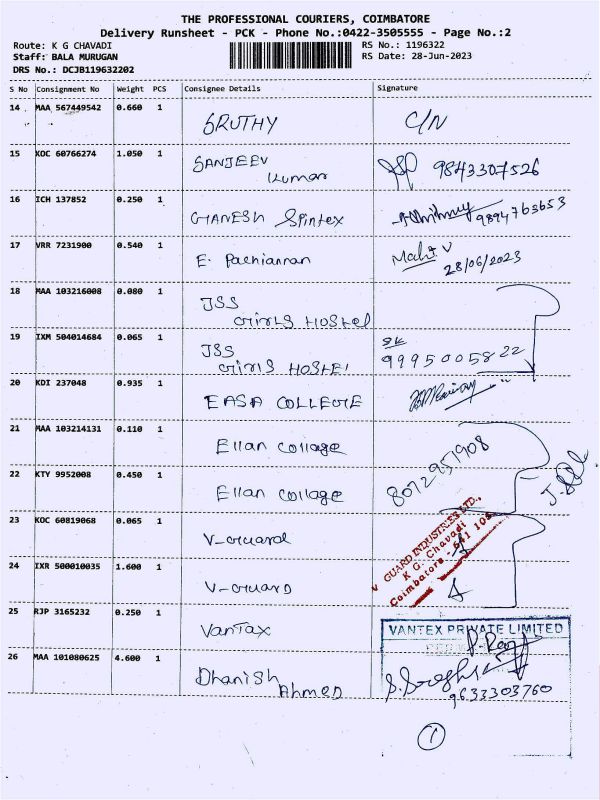 THE PROFESSIONAL COURIERS, COIMBATORE
Delivery Runsheet - PCK - Phone No.:0422-3505555 - Page No.:2
Route: K G CHAVADI RS No.: 1196322
Staff: BALA MURUGAN RS Date: 28-Jun-2023
DRS No.: DCJB119632202
S No Consignment No Weight PCS Consignee Details Signature
14 MAA 567449542 0.660 1 SRUTHY C/N
15 KOC 60766274 1.050 1 SANJEEV Kumar 9843307526
16 ICH 137852 0.250 1 GANESH Spintex 9894765653
17 VRR 7231900 0.540 1 E. Pachiannan
28/06/2023
18 MAA 103216008 0.080 1 JSS
Girls Hostel
19 IXM 504014684 0.065 1 JSS
Girls HOSTEL 9995005822
20 KDI 237048 0.935 1 EASA COLLEGE
21 MAA 103214131 0.110 1 Ellan Collage
22 KTY 9952008 0.450 1 Ellan Collage 8072957908
23 KOC 60819068 0.065 1 V-Guard
V GUARD INDUSTRIES LTD.,
K G. Chavadi
Coimbatore - 641 105
24 IXR 500010035 1.600 1 V-GUARD
25 RJP 3165232 0.250 1 VanTax
VANTEX PRIVATE LIMITED
26 MAA 101080625 4.600 1 Dhanish
Ahmed 9633303760
1